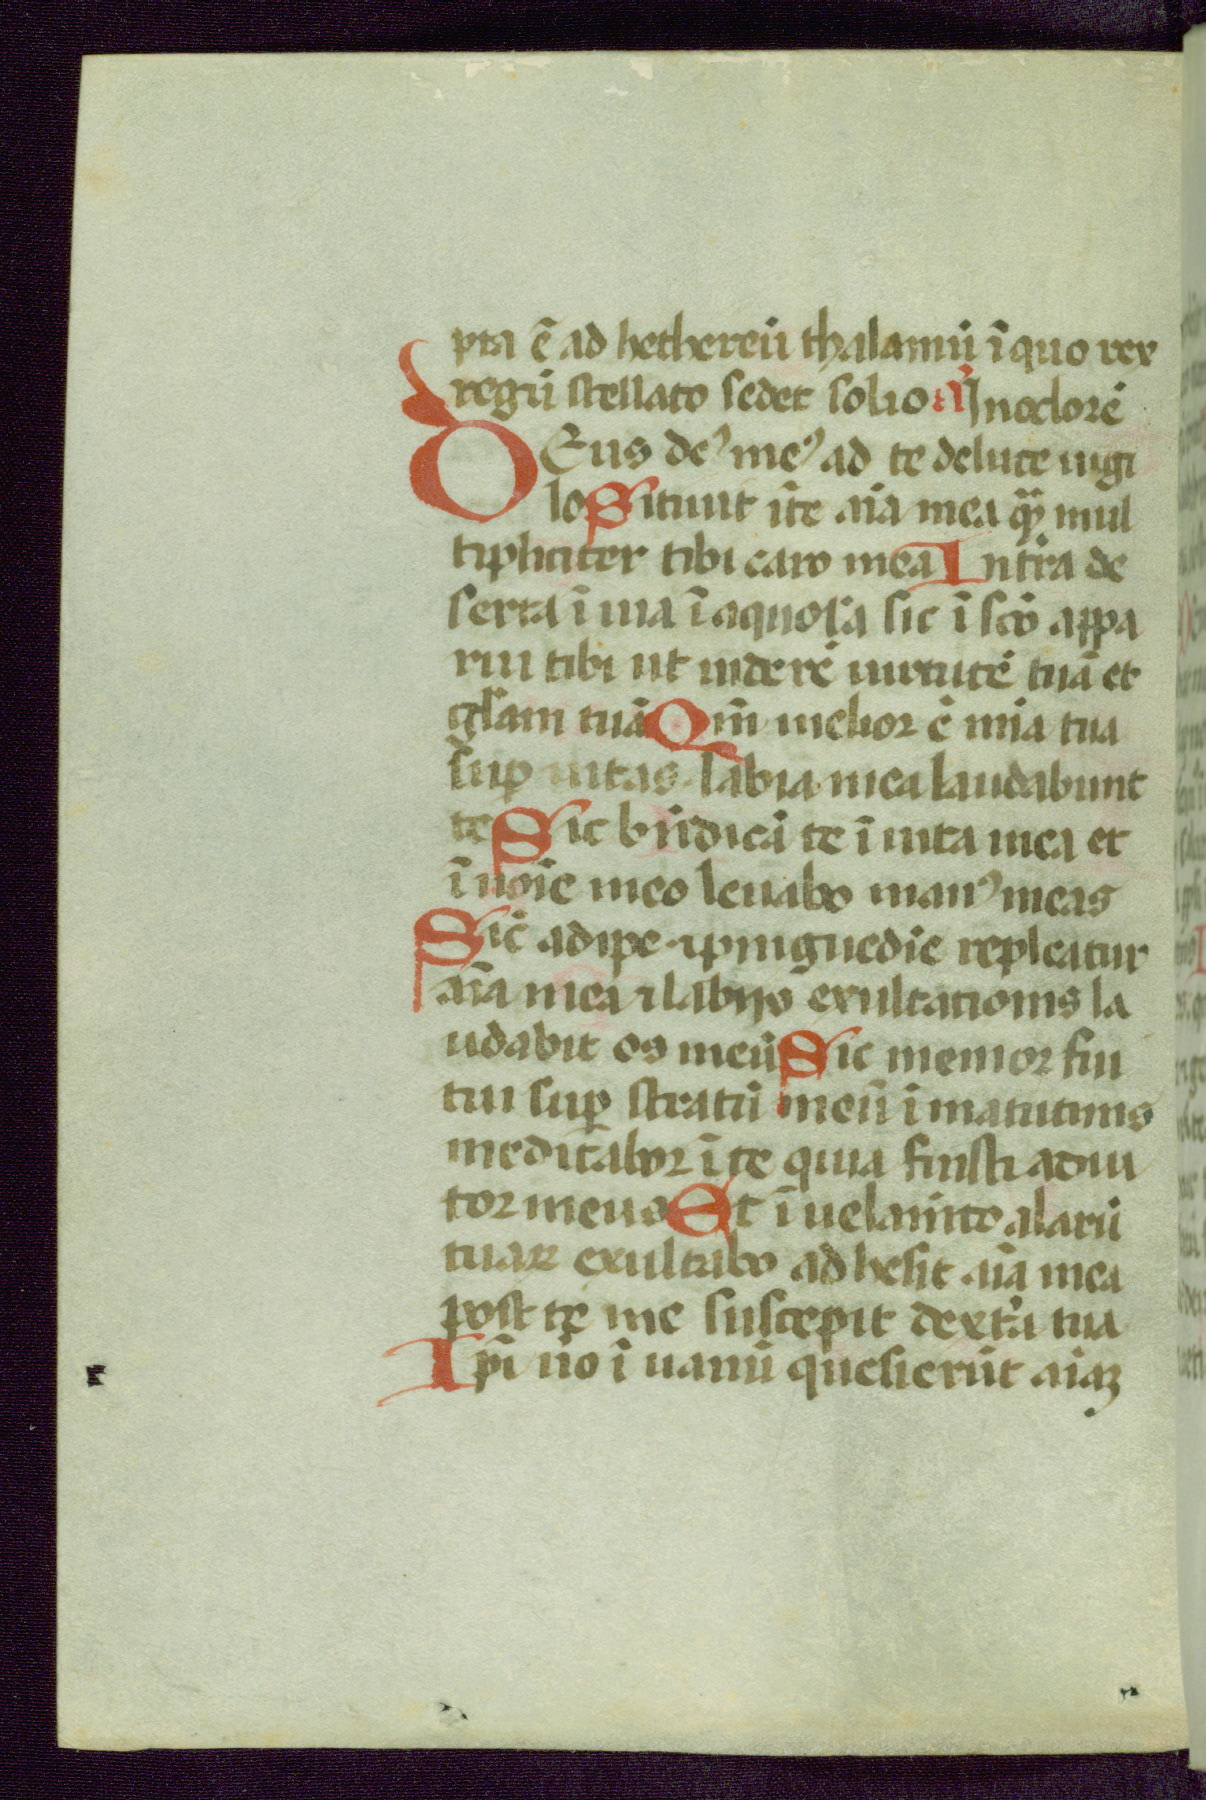 pta ē ad hethereū thalamū ī quo rex
regū stellato sedet solio Inodorē
Deus de᷒ me᷒ ad te de luce uigi
lo Sitiuit ī te aīa mea q̄ mul
tipliciter tibi caro mea In tr̄a de
serta ī uia ī aquosa sic ī scō appa
rui tibi ut uiderē uirtutē tuā et
gl̄am tuā Qm̄ melior ē mīa tua
suꝑ uitas labia mea laudabunt
te Sic bn̄dicā te ī uita mea et
ī noīe meo leuabo man᷒ meas
Sic̄ adipe ⁊ pinguedīe repleatur
aīa mea ⁊ labijs exultationis la
udabit os meū Sic memor fui
tui suꝑ stratū meū ī matutinis
meditabor ī te quia fuisti adiu
tor meus Et ī uelamīto alarū
tuaꝝ exultabo adhesit aīa mea
post te me suscepit dext̄a tua
Ip̄i uō ī uanū quesierūt aīaꝫ